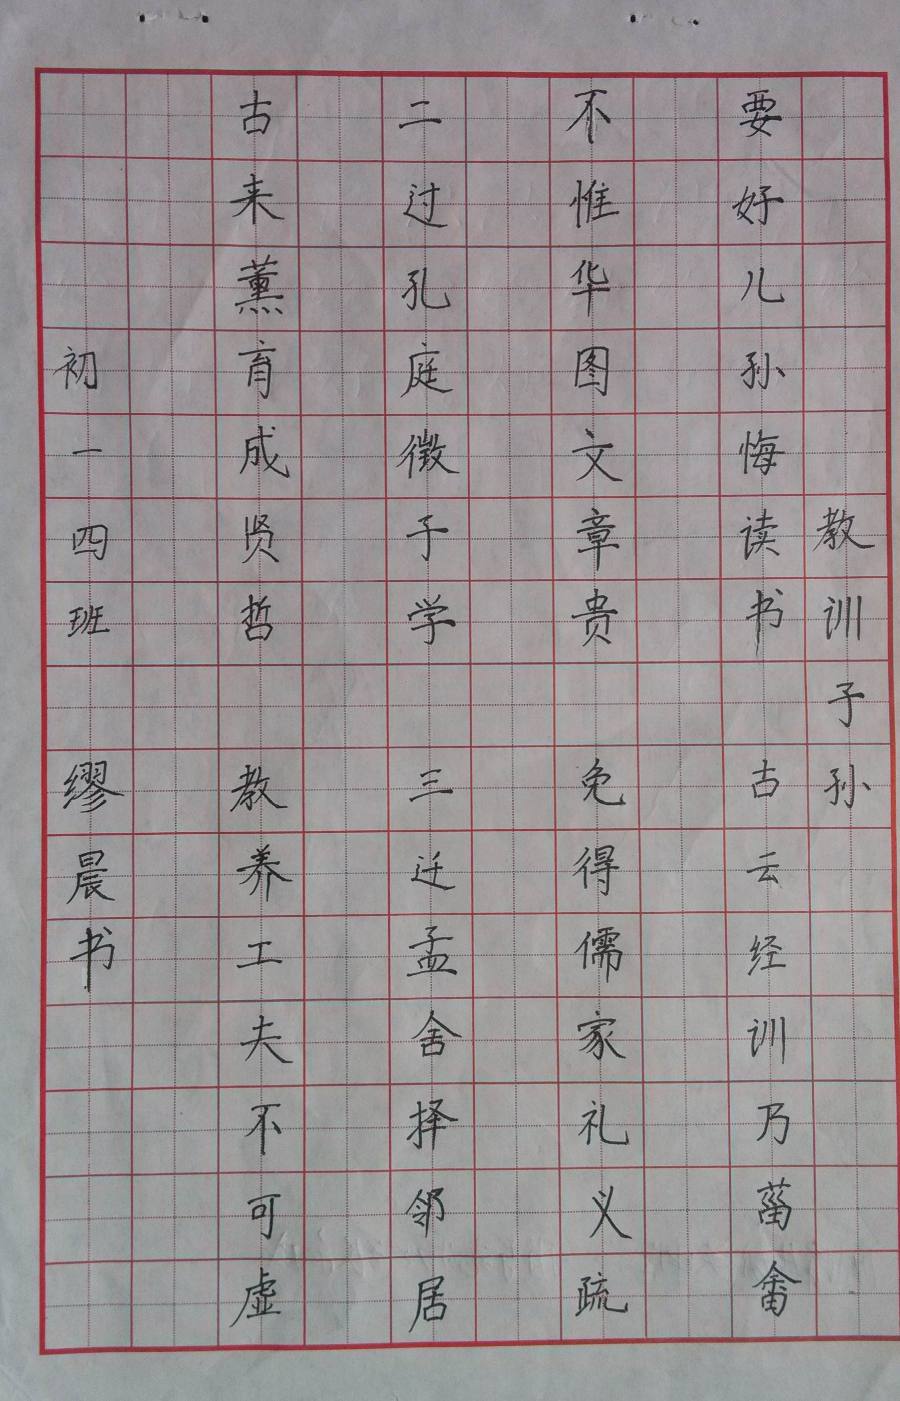 教训子孙
要好儿孙悔读书 古云经训乃菑畬
不惟华图文章贵 免得儒家礼义疏
二过孔庭徵子学 三迁孟舍择邻居
古来薰育成贤哲 教养工夫不可虚
初一四班 缪晨书